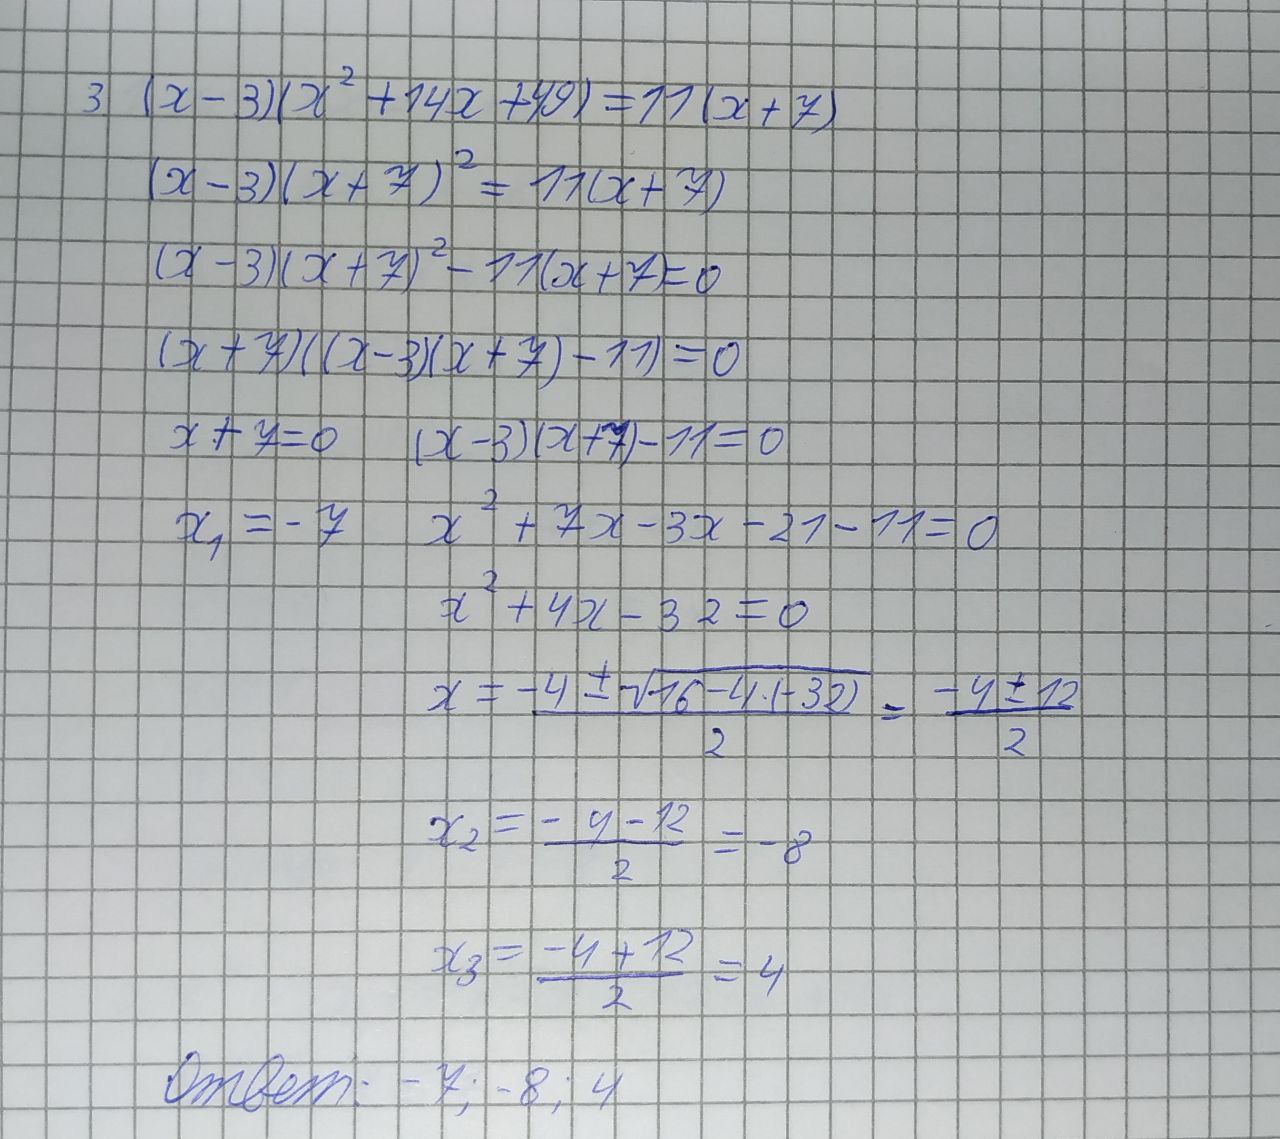 3. (x-3)(x²+14x+49)=11(x+7)
(x-3)(x+7)²=11(x+7)
(x-3)(x+7)²-11(x+7)=0
(x+7)((x-3)(x+7)-11)=0
x+7=0 (x-3)(x+7)-11=0
x₁=-7 x²+7x-3x-21-11=0
x²+4x-32=0
x = (-4±√(16-4·(-32)))/2 = (-4±12)/2
x₂ = (-4-12)/2 = -8
x₃ = (-4+12)/2 = 4
Ответ: -7; -8; 4